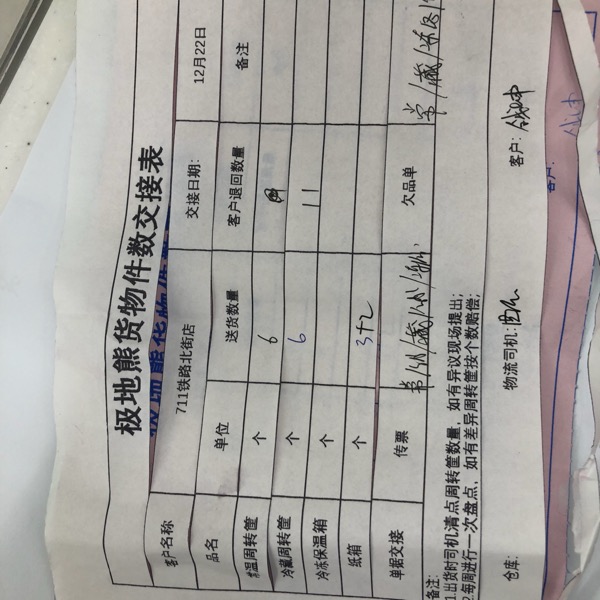 极地熊货物件数交接表
客户名称 711铁路北街店 交接日期: 12月22日
品名 单位 送货数量 客户退回数量 备注
常温周转筐 个 6
冷藏周转筐 个 6 11
冷冻保温箱 个
纸箱 个 3+2
单据交接 传票 欠品单 常/藏/冻
备注:
1.出货时司机清点周转筐数量,如有异议现场提出;
2.每周进行一次盘点,如有差异周转筐按个数赔偿;
仓库: 物流司机: 客户:
客户: